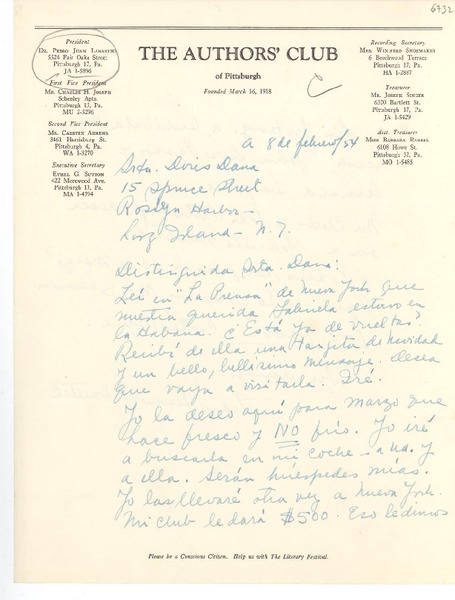 6732
President
Dr. Pedro Juan Labarthe
5324 Fair Oaks Street
Pittsburgh 17, Pa.
JA 1-5896
First Vice President
Mr. Charles H. Joseph
Schenley Apts.
Pittsburgh 13, Pa.
MU 2-5296
Second Vice President
Mr. Carsten Ahrens
3461 Harrisburg St.
Pittsburgh 4, Pa.
WA 1-3270
Executive Secretary
Ethel G. Sutton
422 Morewood Ave.
Pittsburgh 13, Pa.
MA 1-4394
THE AUTHORS' CLUB
of Pittsburgh
Founded March 16, 1918
Recording Secretary
Mrs. Winifred Shoemaker
6 Beechwood Terrace
Pittsburgh, Pa.
HA 1-2887
Treasurer
Mr. Joseph Singer
6320 Bartlett St.
Pittsburgh 17, Pa.
JA 1-5429
Asst. Treasurer
Miss Barbara Russel
6108 Howe St.
Pittsburgh 32, Pa.
MO 1-5485
a 8 de febrero/54
Srta. Doris Dana
15 Spruce Street
Roslyn Harbor -
Long Island - N.Y.
Distinguida Srta. Dana:
Leí en "La Prensa" de Nueva York que
nuestra querida Gabriela estuvo en
la Habana. ¿Está ya de vueltas?
Recibí de ella una tarjeta de navidad
y un bello, bellísimo mensaje. desea
que vaya a visitarla. Iré.
Yo la deseo aquí para marzo que
hace fresco y NO frío. Yo iré
a buscarla en mi coche - a Ud. y
a ella. Serán huéspedes mías.
Yo las llevaré otra vez a Nueva York.
Mi club le dará $500. Eso le dimos
Please be a Conscious Citizen. Help us with The Literary Festival.